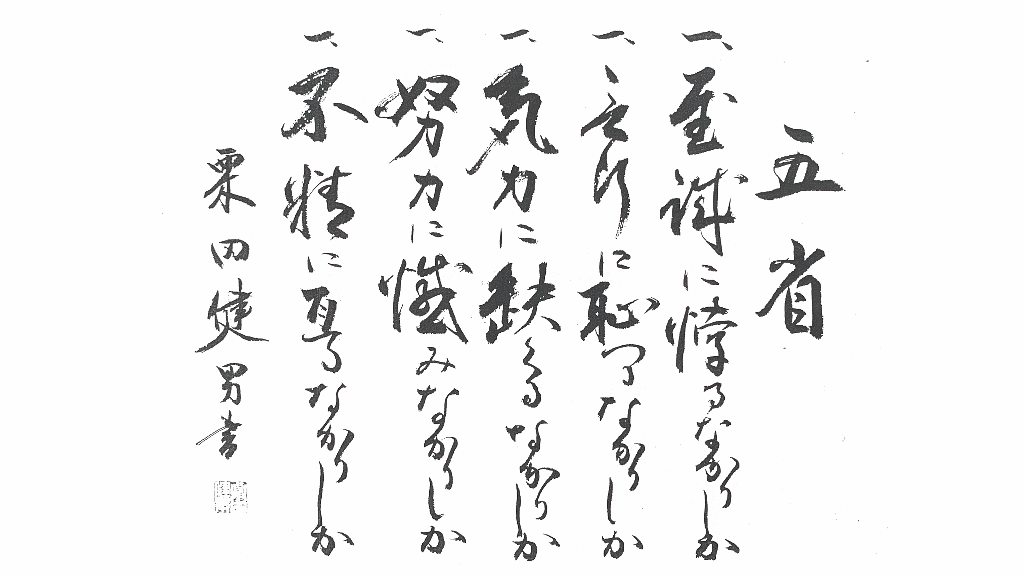 五省
一、至誠に悖るなかりしか
一、言行に恥づるなかりしか
一、気力に缺くるなかりしか
一、努力に憾みなかりしか
一、不精に亘るなかりしか
粟田健男書